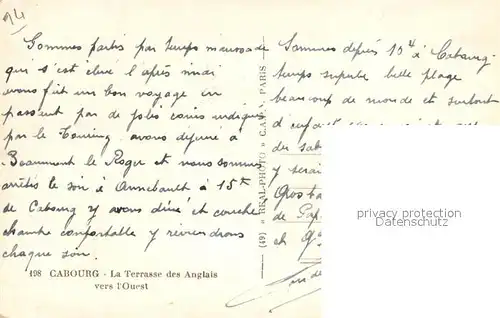 94
Sommes partis par temps maussade
qui s'est élevé l'après midi
avons fait un bon voyage en
passant par de jolis coins indiqués
par le Touring avons déjeuné à
Beaumont le Roger et nous sommes
arrêtés le soir à Annebault à 15 K
de Cabourg y avons dîné et couché
chambre confortable y reviendrons
chaque soir.
198 CABOURG - La Terrasse des Anglais
vers l'Ouest
(49) « REAL-PHOTO » C.A.P. PARIS
Sommes depuis 10h à Cabourg
temps superbe belle plage
beaucoup de monde et surtout
d'enfants
du sab
y serai
de Pap
et
privacy protection
Sammlerdienst